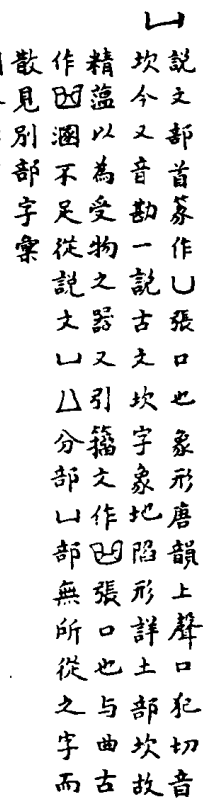 凵
説文部首篆作凵張口也象形唐韻上聲口犯切音
坎今又音勘一説古文坎字象地陷形詳土部坎故
精薀以為受物之器又引籀文作𠙴張口也与曲古
作𠚖溷不足從説文凵𠙴分部凵部無所從之字而
散見別部字彙